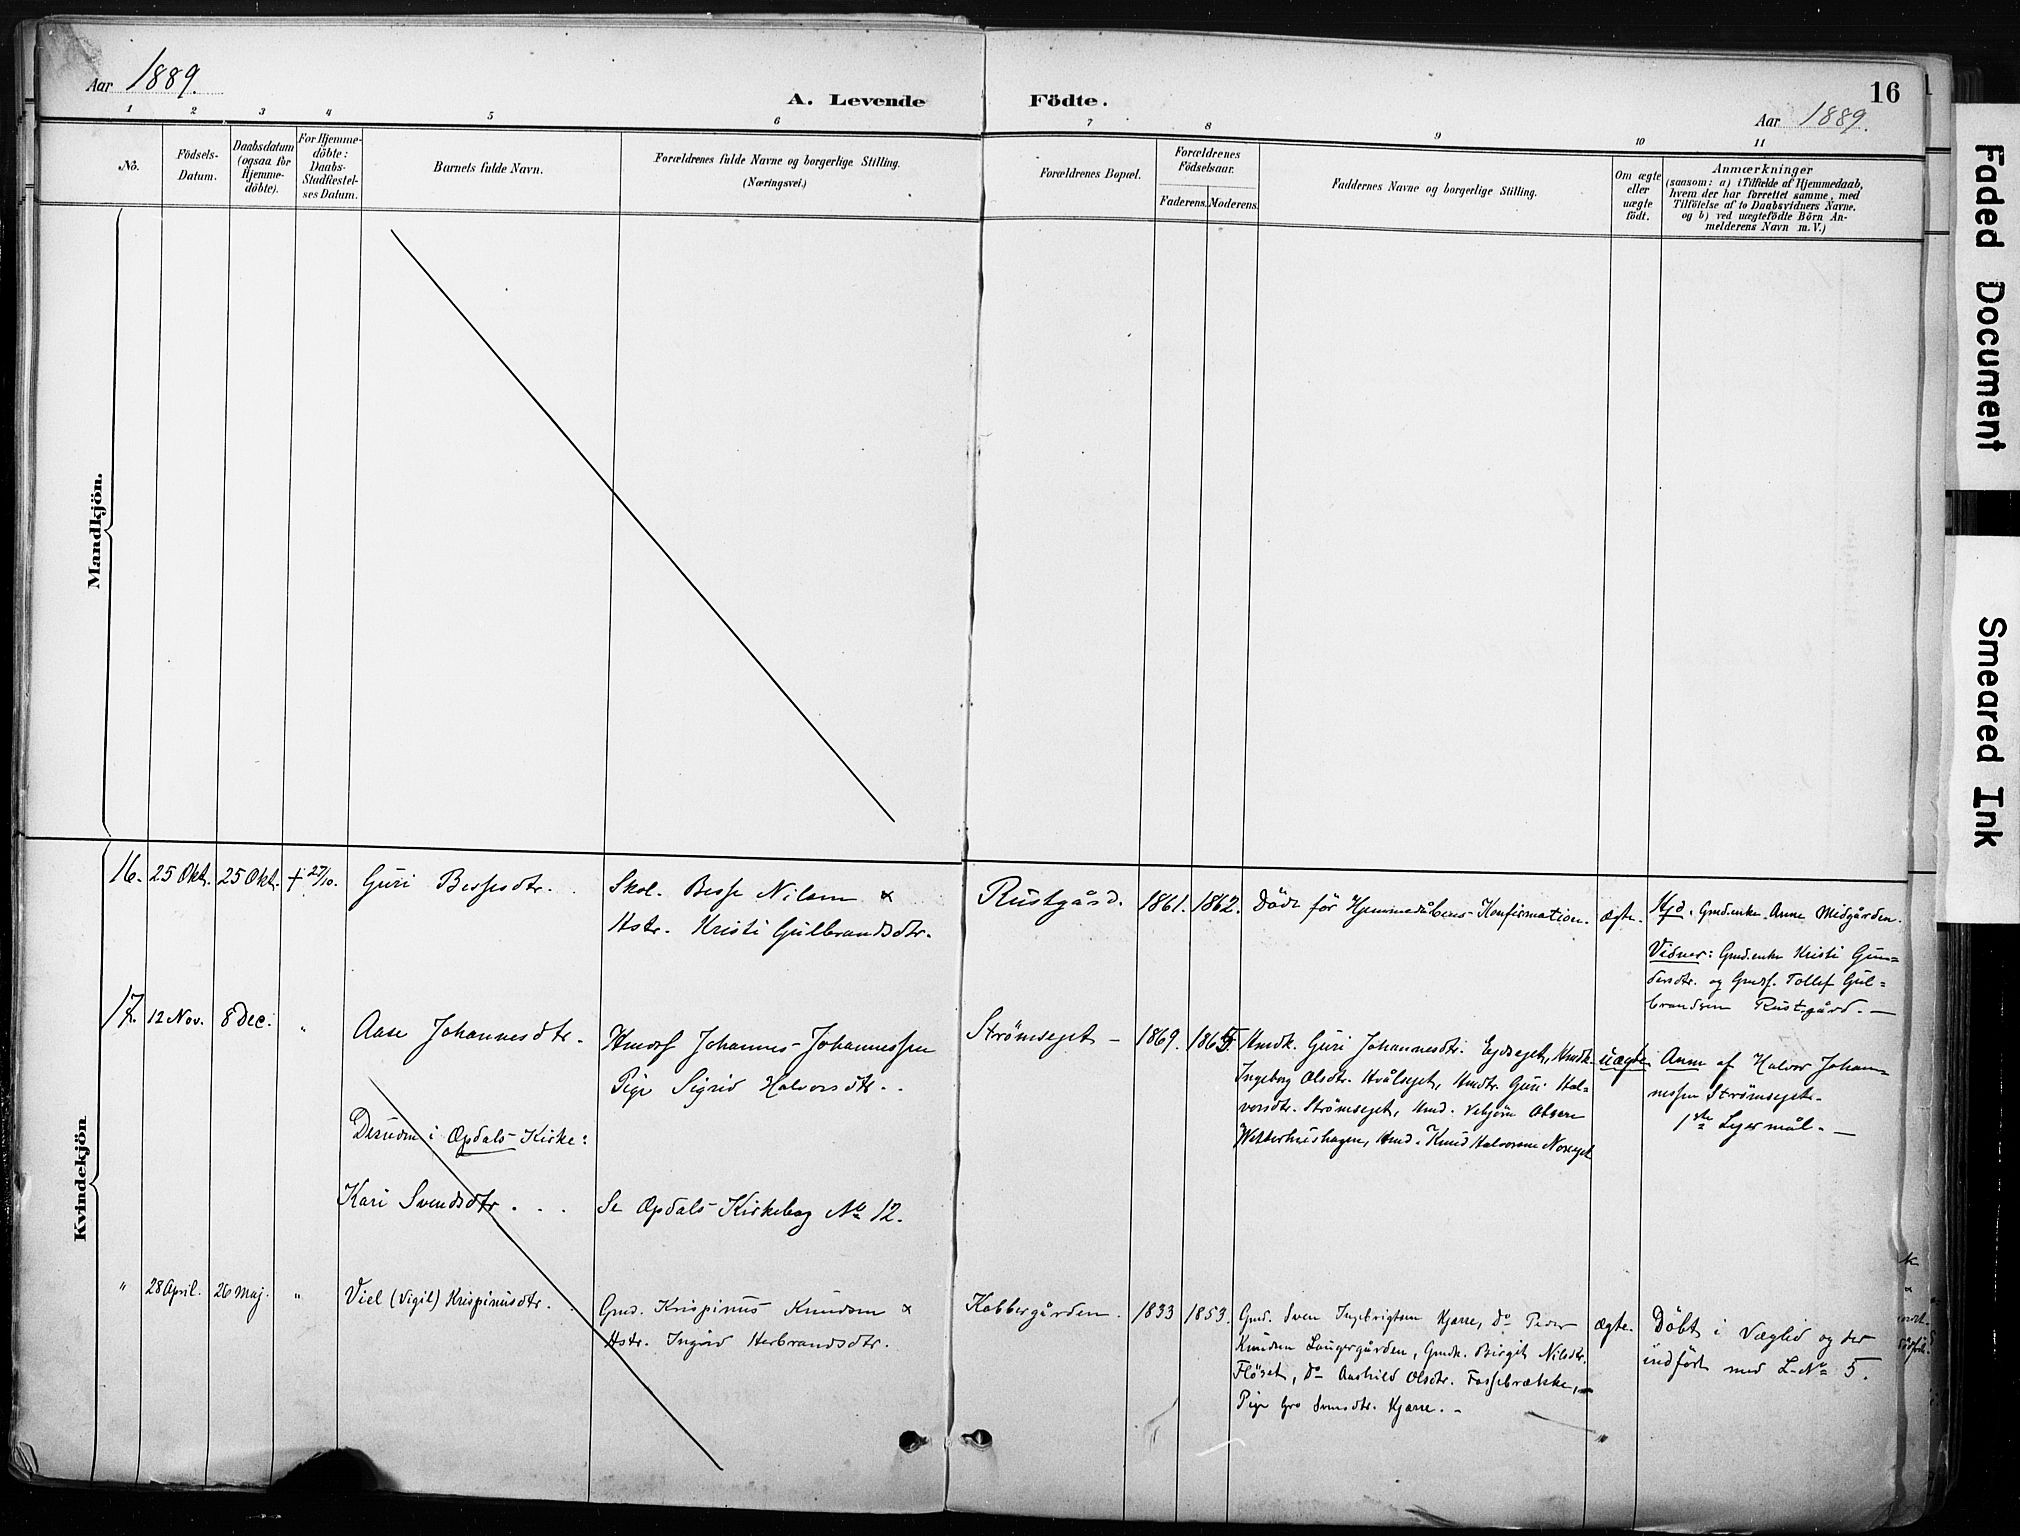 Aar 1889.
A. Levende Födte.
16
Aar 1889.
1 2 3 4 5 6 7 8 9 10 11
No.
Födsels-
Datum.
Daabsdatum
(ogsaa for
Hjemme-
döbte).
For Hjemme-
döbte:
Daabs-
Stadfæstel-
ses Datum.
Barnets fulde Navn.
Forældrenes fulde Navne og borgerlige Stilling.
(Næringsvei.)
Forældrenes Bopæl.
Forældrenes
Födselsaar.
Faderens. Moderens.
Faddernes Navne og borgerlige Stilling.
Om ægte
eller
uægte
födt.
Anmærkninger
(saasom: a) i Tilfælde af Hjemmedaab,
hvem der har forrettet samme, med
Tilföielse af to Daabsvidners Navne.
og b) ved uægtefödte Börn An-
melderens Navn m. V.)
Mandkjön.
Kvindekjön
16. 25 Okt. 25 Okt. † 27/10. Guri Bessesdtr.
Skol. Besse Nilsen &
Hstr. Kristi Gulbrandsdtr.
Rustgård. 1861. 1862. Döde för Hjemmedåbens Konfirmation. ægte.
Hjd. Gmd.enke Anne Midgården.
Vidner: Gmd.enke Kristi Gun=
dersdtr. og Gmdf. Tollef Gul=
brandsen Rustgård. —
17. 12 Nov. 8 Dec. " Aase Johannesdtr.
Hmdsf Johannes Johannessen
Pige Sigrid Halvorsdtr.
Strömseget — 1869. 1865
Hmdk. Guri Johannesdtr. Ejdseget, Hmdk.
Ingeborg Olsdtr. Hvålseget, Hmdtr. Guri Hal-
vorsdtr. Strömseget, Hmd. Vebjörn Olsen
Hmd. Knud Halvorsen Noreget
uægte Anm af Halvor Johan=
nessen Strömseget.
1ste Lejermål. —
Desuden i Opdals Kirke:
Kari Svendsdtr . . .
Se Opdals Kirkebog No 12.
" 28 April. 26 Maj. " Viel (Vigil) Krispinusdtr.
Gmd. Krispinus Knudsen &
Hstr. Ingrid Herbrandsdtr.
Kobbergården. 1833 1853.
Gmd. Sven Ingebrigtsen Kjerre, do Peder
Knudsen Laugergården, Gmdk. Birgit Nilsdtr.
Flöset, do Aashild Olsdtr. Fossebrække,
Pige Gro Svensdtr. Kjerre. —
ægte. Döbt i Væglid og der
indfört med L. No 5.
Faded Document
Smeared Ink